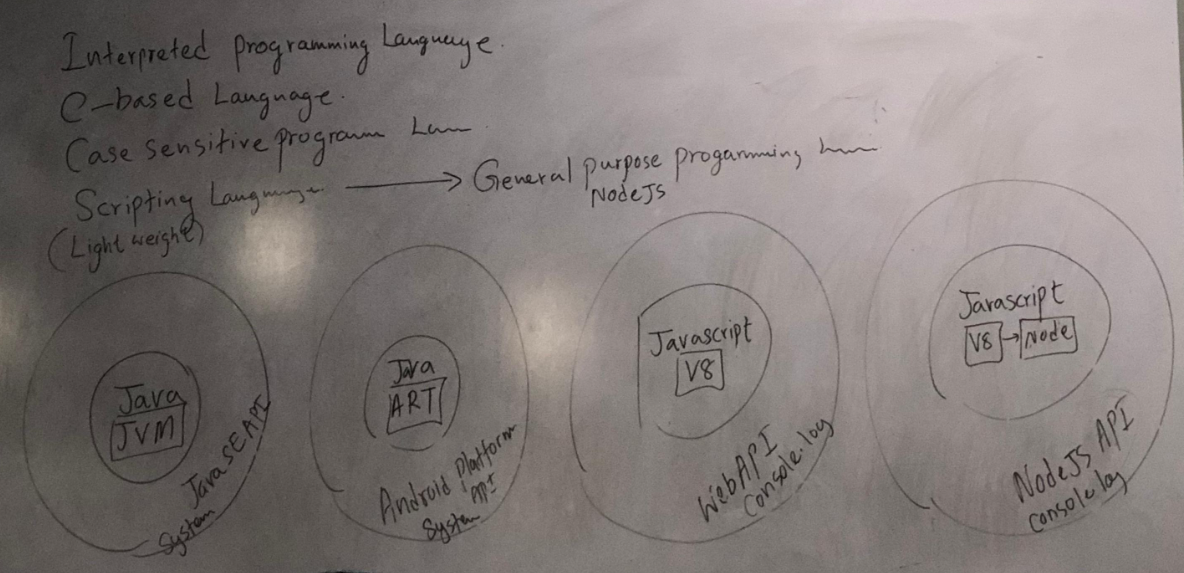 Interpreted programming Language.
C-based Language.
Case sensitive program
Scripting Language → General purpose progamming
NodeJS
(Light weight)
Java
JVM
JavaSE API
System
Java
ART
Android Platform
API
System
Javascript
V8
WebAPI
Console.log
Javascript
V8 → Node
NodeJS API
Console log